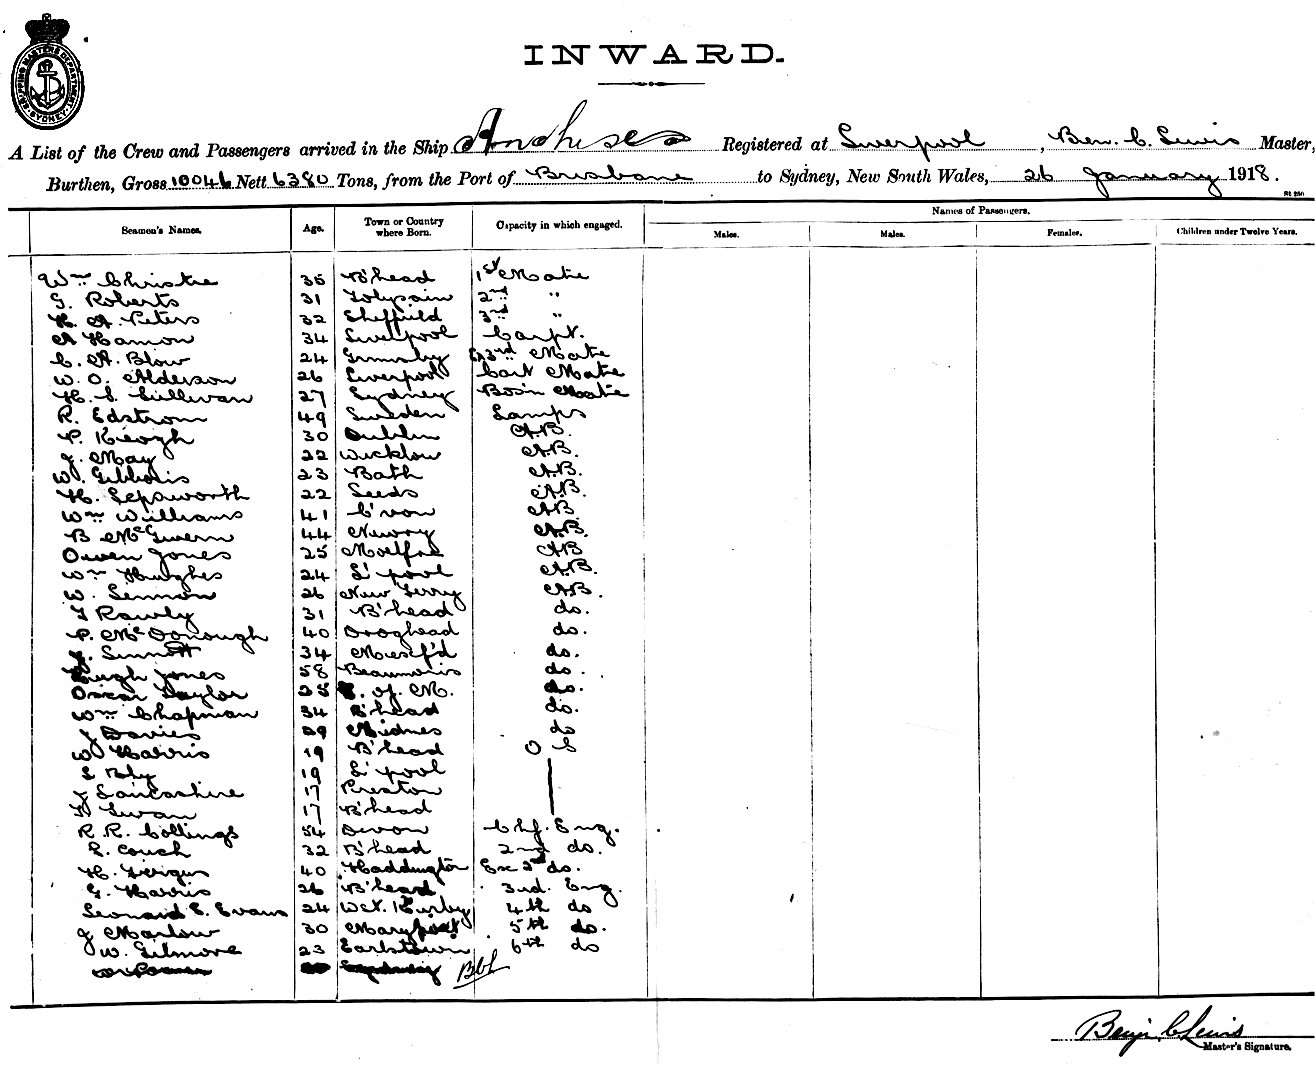 SHIPPING MASTERS DEPARTMENT SYDNEY
INWARD.
A List of the Crew and Passengers arrived in the Ship Anchises Registered at Liverpool, Ben. C. Lewis Master,
Burthen, Gross 10046 Nett 6380 Tons, from the Port of Brisbane to Sydney, New South Wales, 26 January 1918.
Names of Passengers.
Seamen's Names. Age. Town or Country where Born. Capacity in which engaged. Males. Males. Females. Children under Twelve Years.
Wm Christie 35 B'head 1st Mate
G. Roberts 31 2nd "
H. A. Peters 32 Sheffield 3rd "
A Hamon 34 Liverpool Carpt.
C. A. Blow 24 Grimsby Ex 3rd Mate
W. O. Alderson 26 Liverpool Cart Mate
H. S. Sullivan 27 Sydney Bosn Mate
R. Edstrom 49 Sweden Lamps
P. Keogh 30 Dublin A.B.
J. May 22 Wicklow A.B.
W. 23 Bath A.B.
H. Sepsworth 22 Leeds A.B.
Wm Williams 41 C'von A.B
B McGivern 44 Newry A.B.
Owen Jones 25 Moelfre AB
Wm Hughes 24 L'pool A.B.
W. Lennon 26 New Ferry A.B.
T Rawly 31 B'head do.
P. McDonough 40 Drogheda do.
J. Sinnott 34 do.
Hugh Jones 58 Beaumaris do.
Oscar Taylor 25 I. of M. do.
Wm Chapman 34 B'head do.
J Davies 29 Widnes do
W Harris 19 B'head O S
19 L'pool
J Lancashire 17 Preston
Swan 17 B'head
R R. Collings 54 Devon Chf. Eng.
E. Couch 32 B'head 2nd do.
H. Fergus 40 Haddington Ex 2nd do.
G. Harris 26 B'head 3rd. Eng.
Leonard E. Evans 24 Wst. Kirby 4th do
J Marlow 30 Maryport 5th do.
W. Gilmore 23 Earlstown 6th do
Benj. C Lewis
Master's Signature.